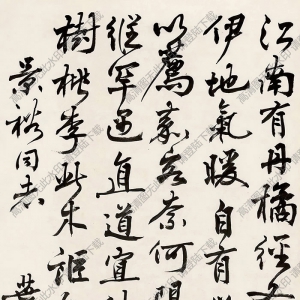 江南有丹橘經
伊地氣暖自有
以薦嘉客奈何
罕遇直道宜
樹桃李此木詎
景裕同志